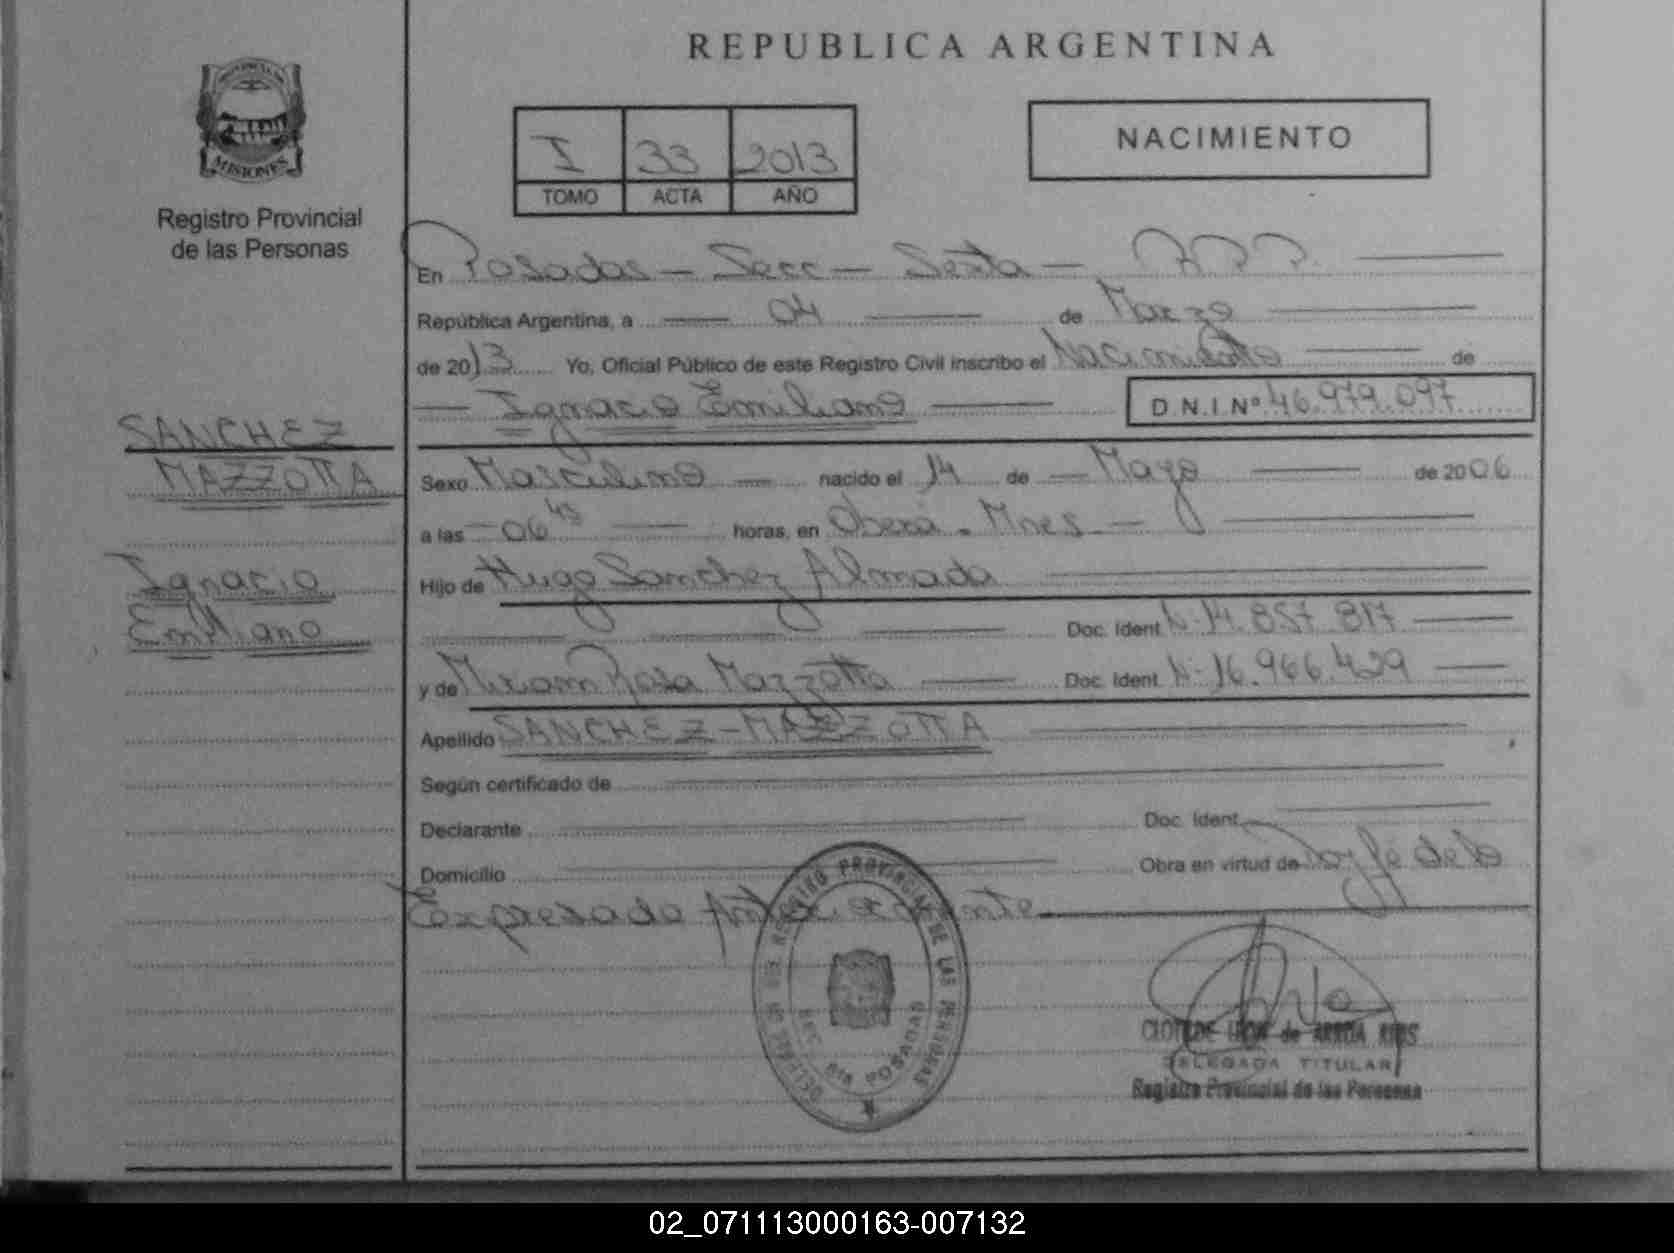 REPUBLICA ARGENTINA
PROVINCIA DE
MISIONES
Registro Provincial
de las Personas
I 33 2013
TOMO ACTA AÑO
NACIMIENTO
En Posadas - Secc - Sexta - R.P.P.
República Argentina, a 04 de Marzo
de 2013 Yo, Oficial Público de este Registro Civil inscribo el Nacimiento de
Ignacio Emiliano D.N.I Nº 46.979.097
SANCHEZ
MAZZOTTA
Sexo Masculino nacido el 14 de Mayo de 2006
a las 06 45 horas, en Oberá - Mnes -
Ignacio
Emiliano
Hijo de Hugo Sanchez Almada
Doc. Ident. Nº 14.857.817
y de Miriam Rosa Mazzotta Doc. Ident. Nº 16.966.429
Apellido SANCHEZ - MAZZOTTA
Según certificado de
Declarante Doc. Ident.
Domicilio Obra en virtud de Doy fe de lo
Expresado Anteriormente
REGISTRO PROVINCIAL DE LAS PERSONAS
SEC. 6ta POSADAS
CLOTILDE de RIOS
DELEGADA TITULAR
Registro Provincial de las Personas
02_071113000163-007132